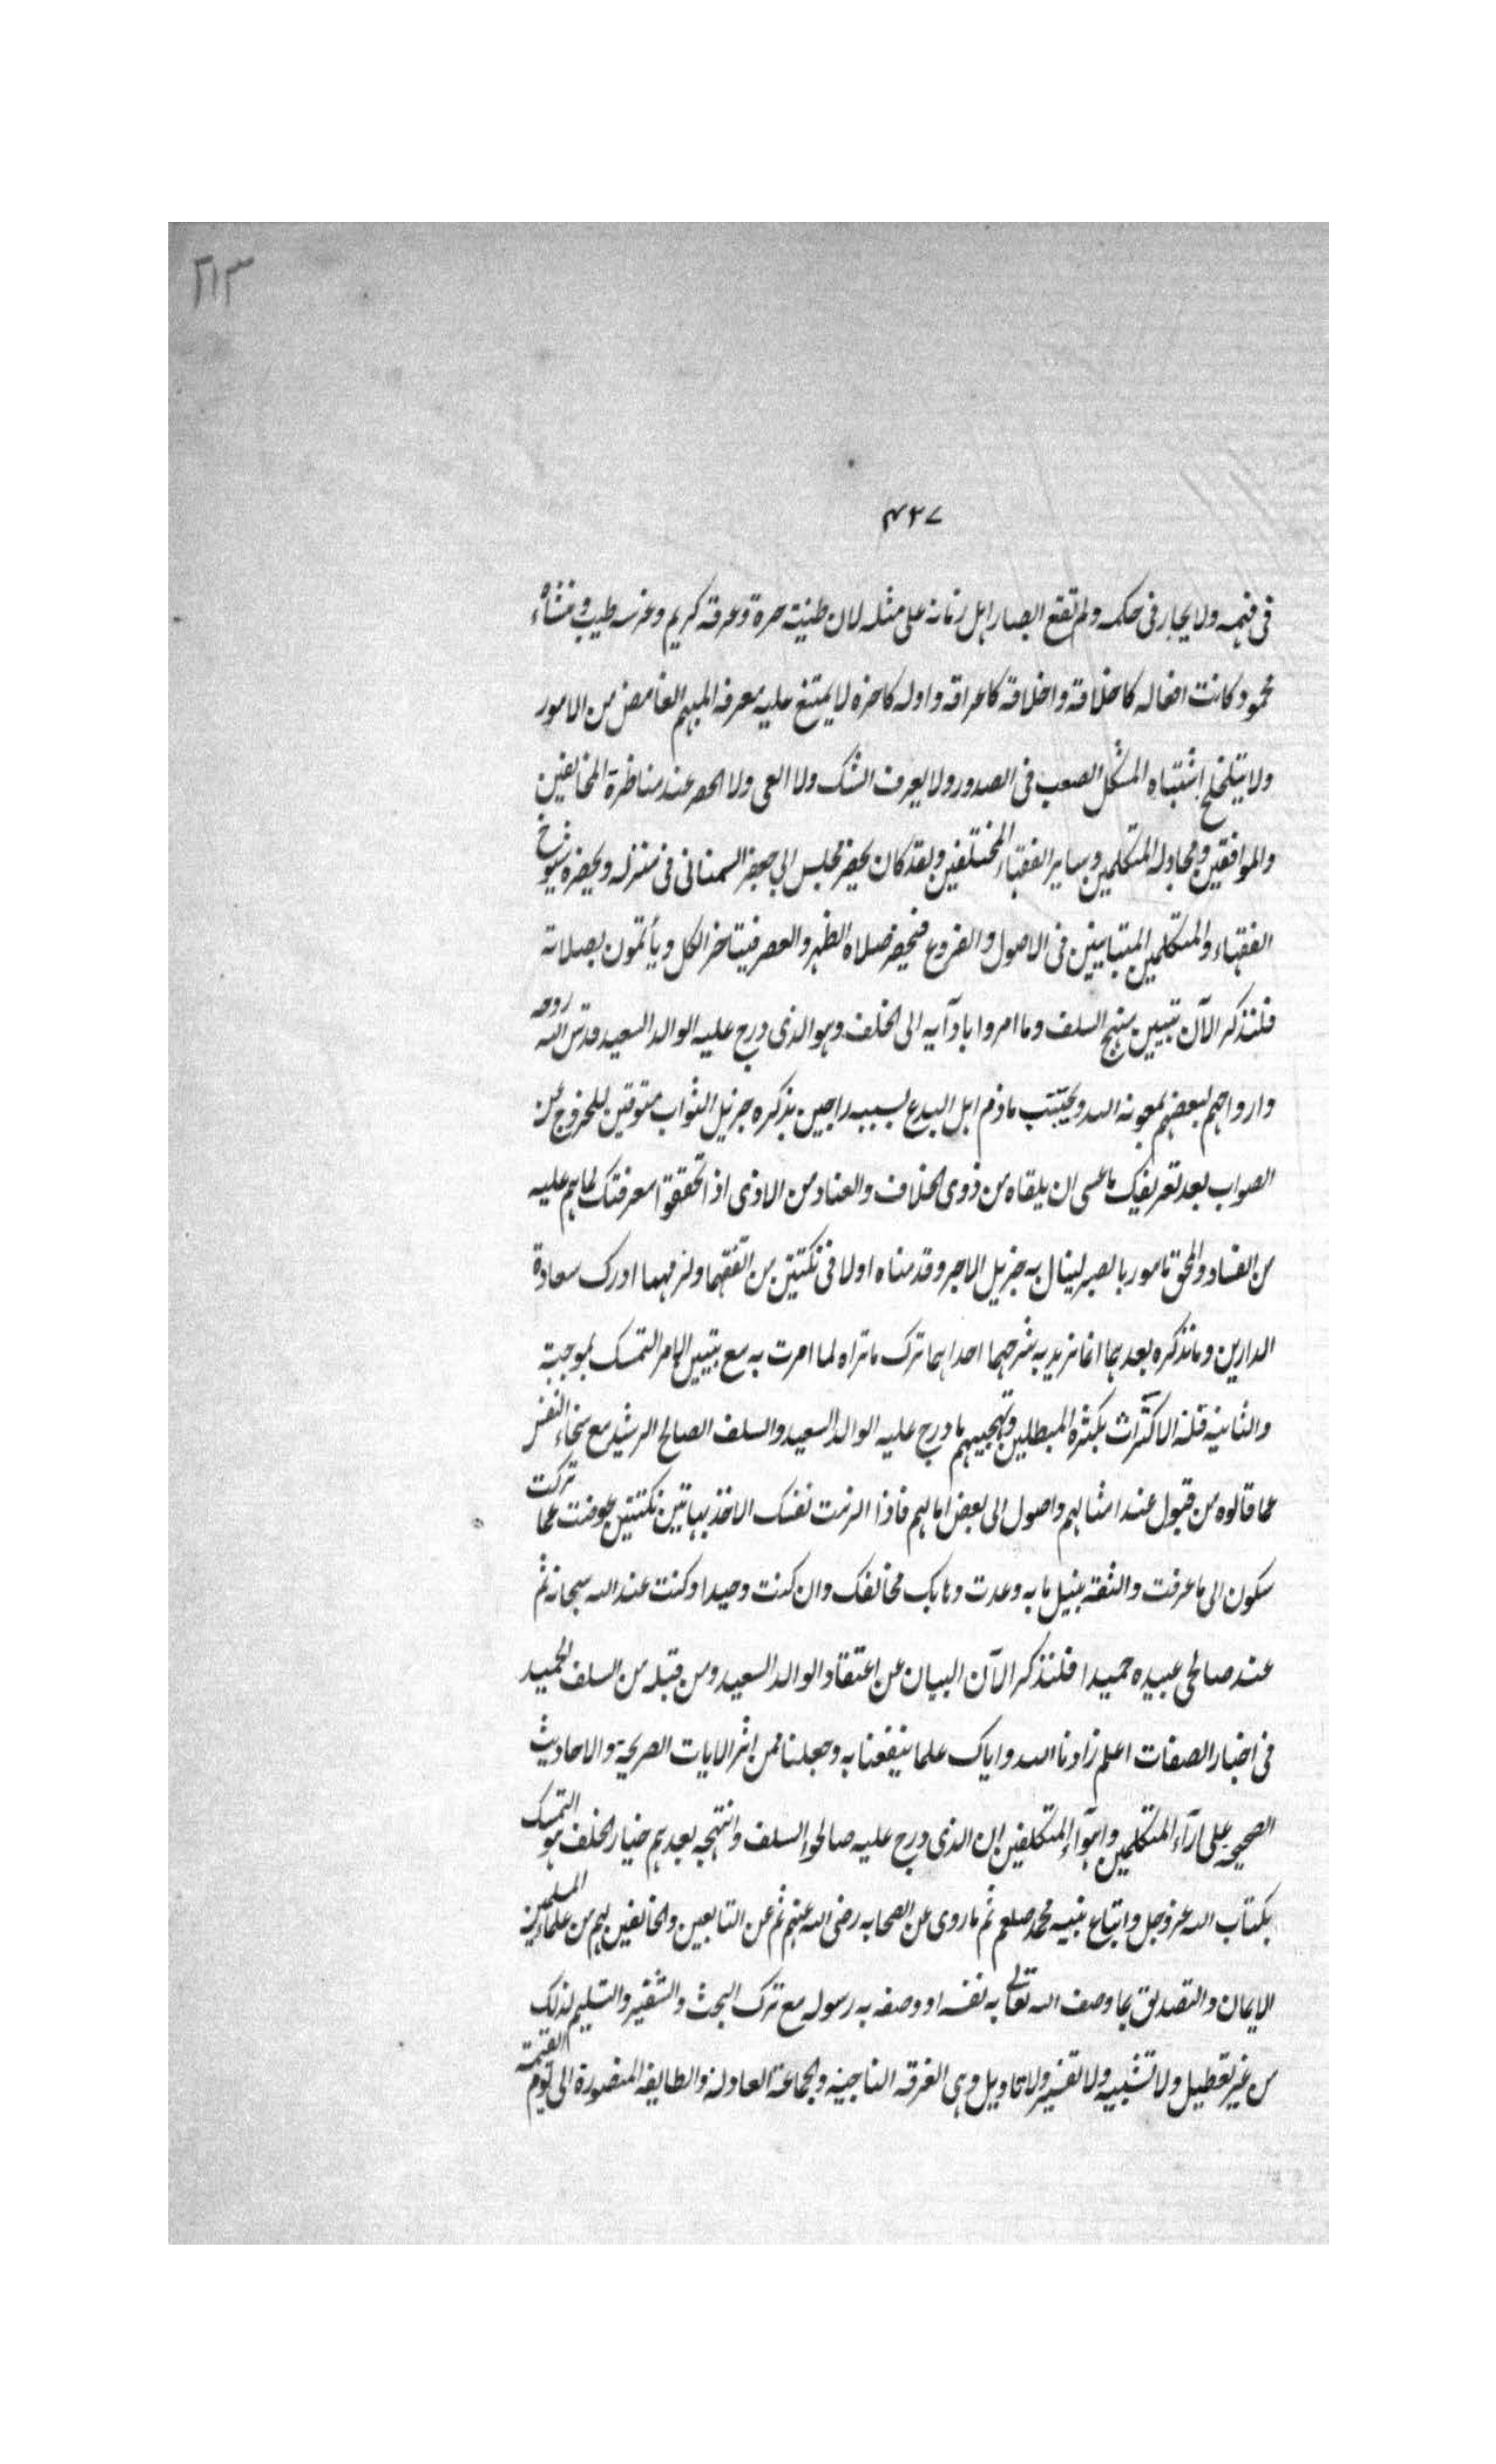 ٢١٣
٤٢٧
فى فهمه ولا يجار فى حكمه ولم تقع ابصار اهل زمانه على مثله لان طينته حرة وعرقه كريم وغرسه طيب ومنشاءه
محمود كانت افعاله كاخلاقه واخلاقه كاعراقه واوله كاخره لا يمتنع عليه معرفه المبهم الغامض من الامور
ولا يتلخلج اشتباه المشكل الصعب فى الصدور ولا يعرف الشك ولا العى ولا الحصر عند مناظرة المخالفين
والموافقين ومجادله المتكلمين وساير الفقهاء المختلفين ولقد كان يحضر مجلس ابى جعفر السمنانى فى منزله ويحضره شيوخ
الفقهاء والمتكلمين المتباينين فى الاصول والفروع فتحضر صلاة الظهر والعصر فيتاخر الكل ويأتمون بصلاته
فلنذكر الآن تبيين منهج السلف وما امروا بادآيه الى الخلف وهو الذى درج عليه الوالد السعيد قدس الله روحه
وارواحهم لبعضهم بمعونه الله ويجتنب ماذم اهل البدع بسببه راجين بذكره جزيل الثواب متوقين للخروج عن
الصواب بعد تعريفك ما عسى ان يلقاه من ذوى الخلاف والعناد من الاذى اذا تحققوا معرفتك لما هم عليه
من الفساد والمحق مامور بالصبر لينال به جزيل الاجر وقد مناه اولا فى نكتتين من اتقنهما ولزمهما ادرك سعادة
الدارين وما نذكره بعدهما انما نزيد به شرحهما احداهما ترك ما تراه لما امرت به مع تبيين الامر التمسك بموجبته
والثانيه قلة الاكتراث بكثرة المبطلين وتهجينهم ما درج عليه الوالد السعيد والسلف الصالح الرشيد مع سخاء النفس
عما قالوه من قبول عند امثالهم واصول الى بعض امالهم فاذا الزمت نفسك الاخذ بهاتين نكتتين عوضت عما تركت
سكون الى ما عرفت والثقة بنيل ما به وعدت وهابك مخالفك وان كنت وحيدا وكنت عند الله سبحانه ثم
عند صالحى عبيده حميدا فلنذكر الآن البيان عن اعتقاد الوالد السعيد ومن قبله من السلف الحميد
فى اخبار الصفات اعلم زادنا الله واياك علما ينفعنا به وجعلنا ممن اثر الايات الصريحة والاحاديث
الصحيحه على آراء المتكلمين واهوآء المتكلفين ان الذى درج عليه صالحوا السلف وانتهجه بعدهم خيار الخلف هو التمسك
بكتاب الله عز وجل واتباع نبيه محمد صلعم ثم ما روى عن الصحابه رضى الله عنهم ثم عن التابعين والخالفين لهم من علماء المسلمين
الايمان والتصديق بما وصف الله تعالى به نفسه او وصفه به رسوله مع ترك البحث والتنقير والتسليم لذلك
من غير تعطيل ولا تشبيه ولا تفسير ولا تاويل وهى الفرقه الناجيه والجماعة العادلة والطايفه المنصورة الى يوم القيمة